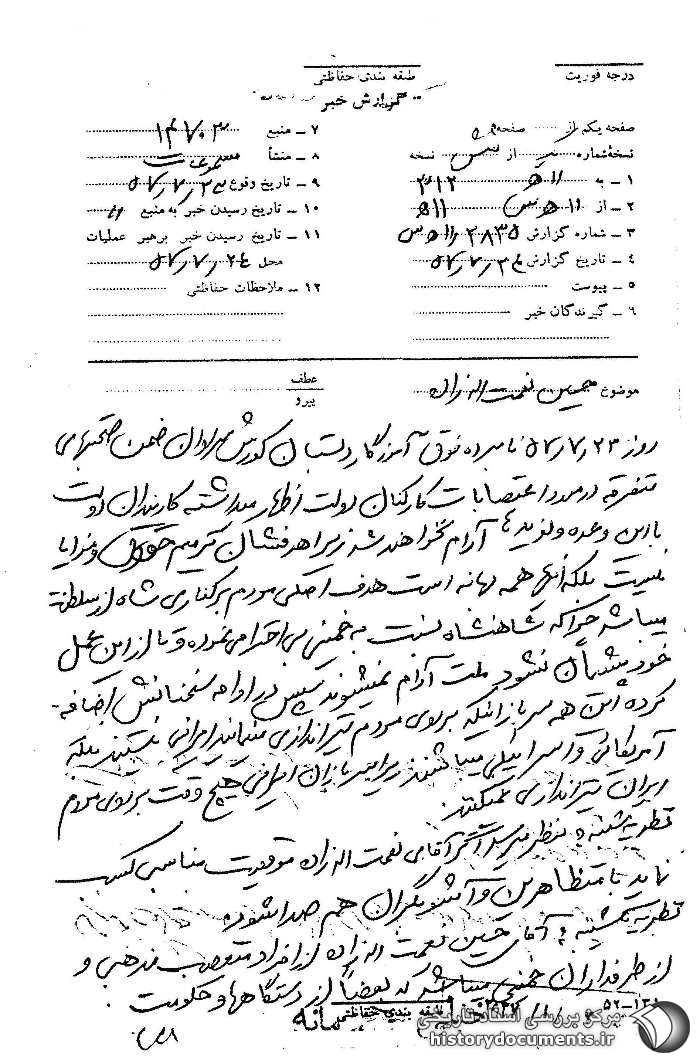 درجه فوریت
طبقه بندی حفاظتی
گزارش خبر
صفحه یکم از صفحه
نسخه شماره از نسخه
۱ - به ۳۱۲
۲ - از
۳ - شماره گزارش
۴ - تاریخ گزارش
۵ - پیوست
۶ - گیرندگان خبر
۷ - منبع ۱۴۷۰۳
۸ - منشأ
۹ - تاریخ وقوع
۱۰ - تاریخ رسیدن خبر به منبع
۱۱ - تاریخ رسیدن خبر برهبر عملیات
محل ۵۷/۷/۲۴
۱۲ - ملاحظات حفاظتی
موضوع حسین نعمت اله زاده
عطف
پیرو
روز ۵۷/۷/۲۳ نامبرده فوق آموزگار دبستان کورش ضمن صحبتهای
متفرقه در مورد اعتصابات کارکنان دولت اظهار میداشته کارمندان دولت
با این وعده و نویدها آرام نخواهند شد زیرا هدفشان ترمیم حقوق و مزایا
نیست بلکه اینها همه بهانه است هدف اصلی مردم برکناری شاه از سلطنت
میباشد چرا که شاهنشاه نسبت به خمینی بی احترامی نموده و تا از این عمل
خود پشیمان نشود ملت آرام نمیشوند سپس در ادامه سخنانش اضافه
کرده این همه سربازانیکه بروی مردم تیراندازی مینمایند ایرانی نیستند بلکه
آمریکائی و اسرائیلی میباشند زیرا سربازان ایرانی هیچ وقت بروی مردم
ایران تیراندازی نمیکنند
نظریه شنبه بنظر میرسد اگر آقای نعمت اله زاده موقعیت مناسبی کسب
نماید با متظاهرین و آشوبگران هم صدا شود
نظریه یکشنبه آقای حسین نعمت اله زاده از افراد متعصب مذهبی و
از طرفداران خمینی میباشد که بعضاً از دستگاهها و حکومت
طبقه بندی حفاظتی
مرکز بررسی اسناد تاریخی
historydocuments.ir